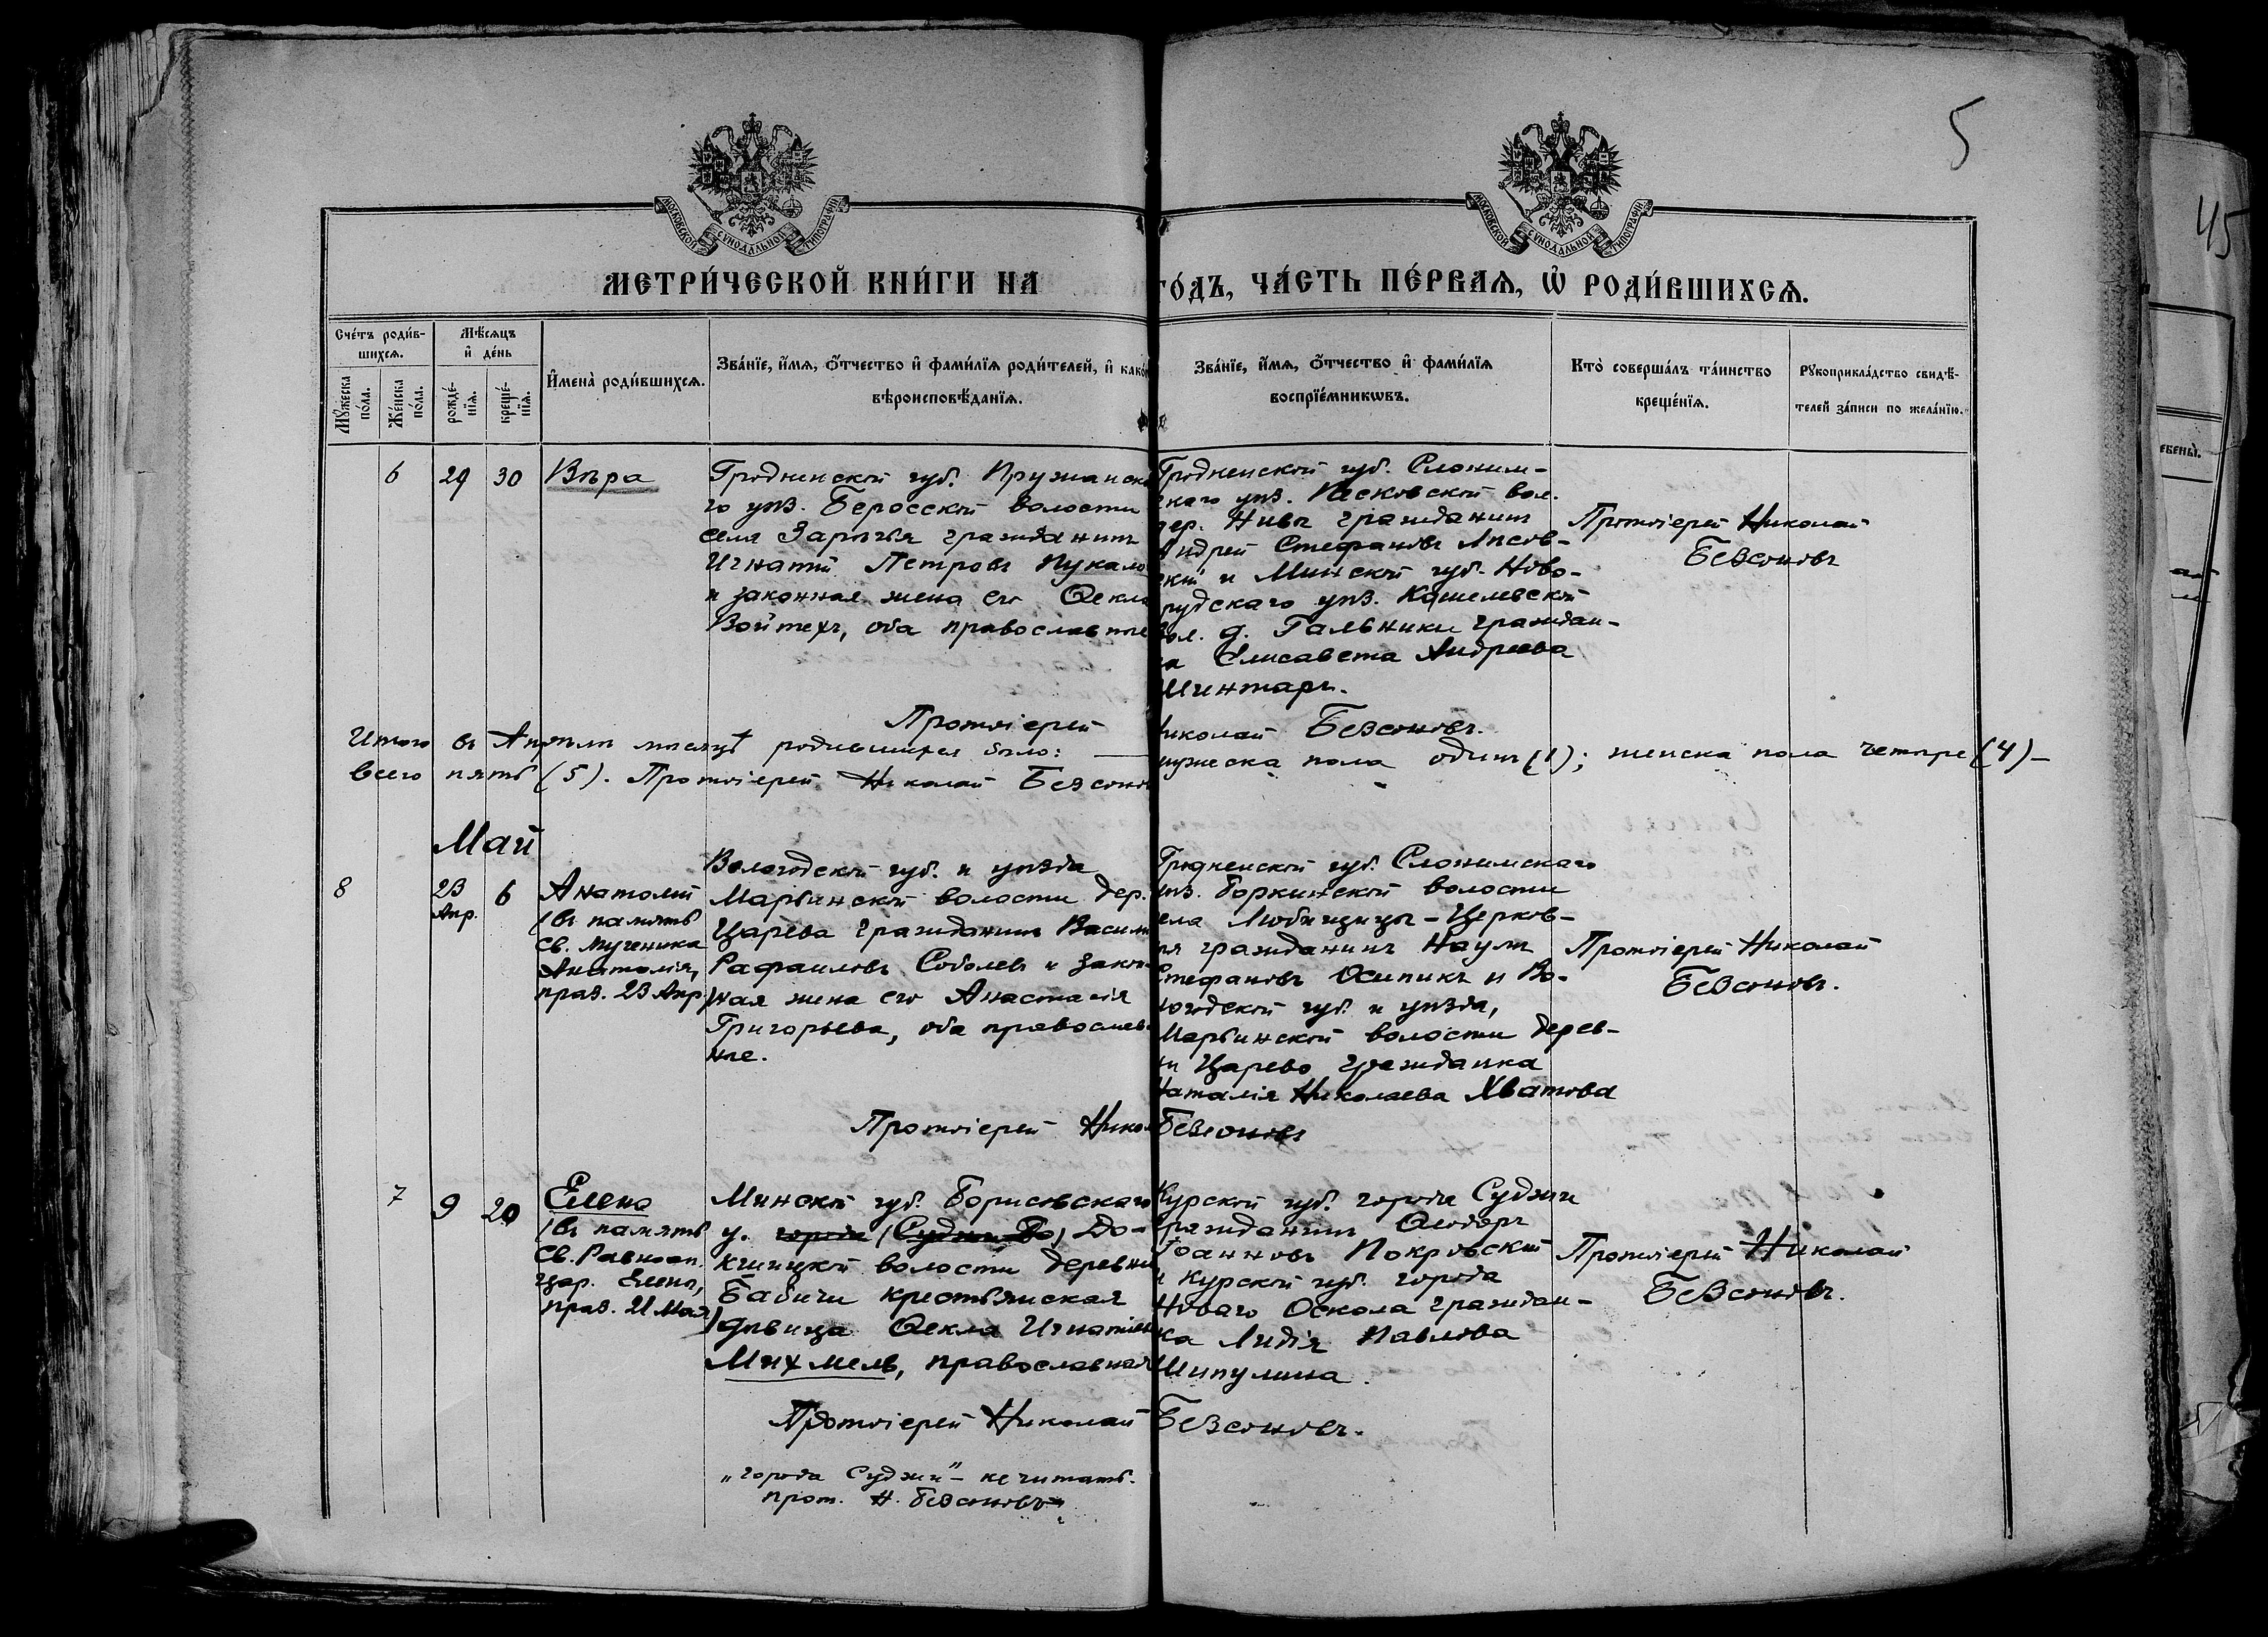 5
45
МОСКОВСКОЙ СѴНОДАЛЬНОЙ ТИПОГРАФІИ
МОСКОВСКОЙ СѴНОДАЛЬНОЙ ТИПОГРАФІИ
МЕТРИ́ЧЕСКОЙ КНИ́ГИ НА
ГО́ДЪ, ЧА́СТЬ ПЕ́РВАѦ, Ѡ҆ РОДИ́ВШИХСѦ.
Сче́тъ роди́в-
шихсѧ.
Мꙋ́жеска
по́ла.
Же́нска
по́ла.
Мѣ́сѧцъ
и҆ де́нь
рожде́-
нїѧ.
креще́-
нїѧ.
И҆мена̀ роди́вшихсѧ.
Зва́нїе, и҆́мѧ, ѻ҆́тчество и҆ фами́лїѧ роди́телей, и҆ како́
вѣроисповѣ́данїѧ.
Зва́нїе, и҆́мѧ, ѻ҆́тчество и҆ фами́лїѧ
воспрїе́мникѡвъ.
Кто̀ соверша́лъ та́инство
креще́нїѧ.
Рꙋкоприкла́дство свидѣ́-
телей за́писи по жела́нїю.
6 29 30 Вѣра
Гродненской губ. Пружанска
го уѣз. Беросской волости
села Зарѣчья гражданинъ
Игнатій Петровъ Пукало
и законная жена его Ѳекла
Войтехъ, оба православные
Гродненской губ. Слоним-
скаго уѣз. Песковской вол.
дер. Нивы гражданинъ
Андрей Стефановъ Лисов-
скій и Минской губ. Ново-
грудскаго уѣз. Кошелевской
вол. д. Гальники граждан-
ка Елисавета Андреева
Шинтарь.
Протоіерей Николай
Безсоновъ
Протоіерей Николай Безсоновъ.
Итого въ Апрѣлѣ мѣсяцѣ родившихся было: — мужеска пола одинъ (1); женска пола четыре (4) —
всего пять (5). Протоіерей Николай Безсоновъ
Май
8 23 Апр. 6
Анатолій
(въ память
св. мученика
Анатолія,
праз. 23 Апр.)
Вологодской губ. и уѣзда
Марьинской волости дер.
Царева гражданинъ Васил
Рафаиловъ Соболевъ и закон-
ная жена его Анастасія
Григорьева, оба православ-
ные.
Гродненской губ. Слонимскаго
уѣз. Боркинской волости
села Любищицы-Церков-
ня гражданинъ Наумъ
Стефановъ Осипикъ и Во-
логодской губ. и уѣзда,
Марьинской волости дерев-
ни Царево гражданка
Наталія Николаева Хватова
Протоіерей Николай
Безсоновъ.
Протоіерей Никол Безсоновъ
7 9 20
Елена
(въ память
св. Равноап.
цар. Елены,
праз. 21 Мая)
Минской губ. Борисовскаго
у. города (Суджи До) До-
кшицкой волости деревни
Бабичи крестьянская
дѣвица Ѳекла Игнатіева
Михмель, православная
Курской губ. города Суджи
гражданинъ Ѳеодоръ
Іоанновъ Покровскій
и Курской губ. города
Новаго Оскола граждан-
ка Лидія Павлова
Шипулина.
Протоіерей Николай
Безсоновъ.
Протоіерей Николай Безсоновъ.
„города Суджи" – не читать.
прот. Н. Безсоновъ